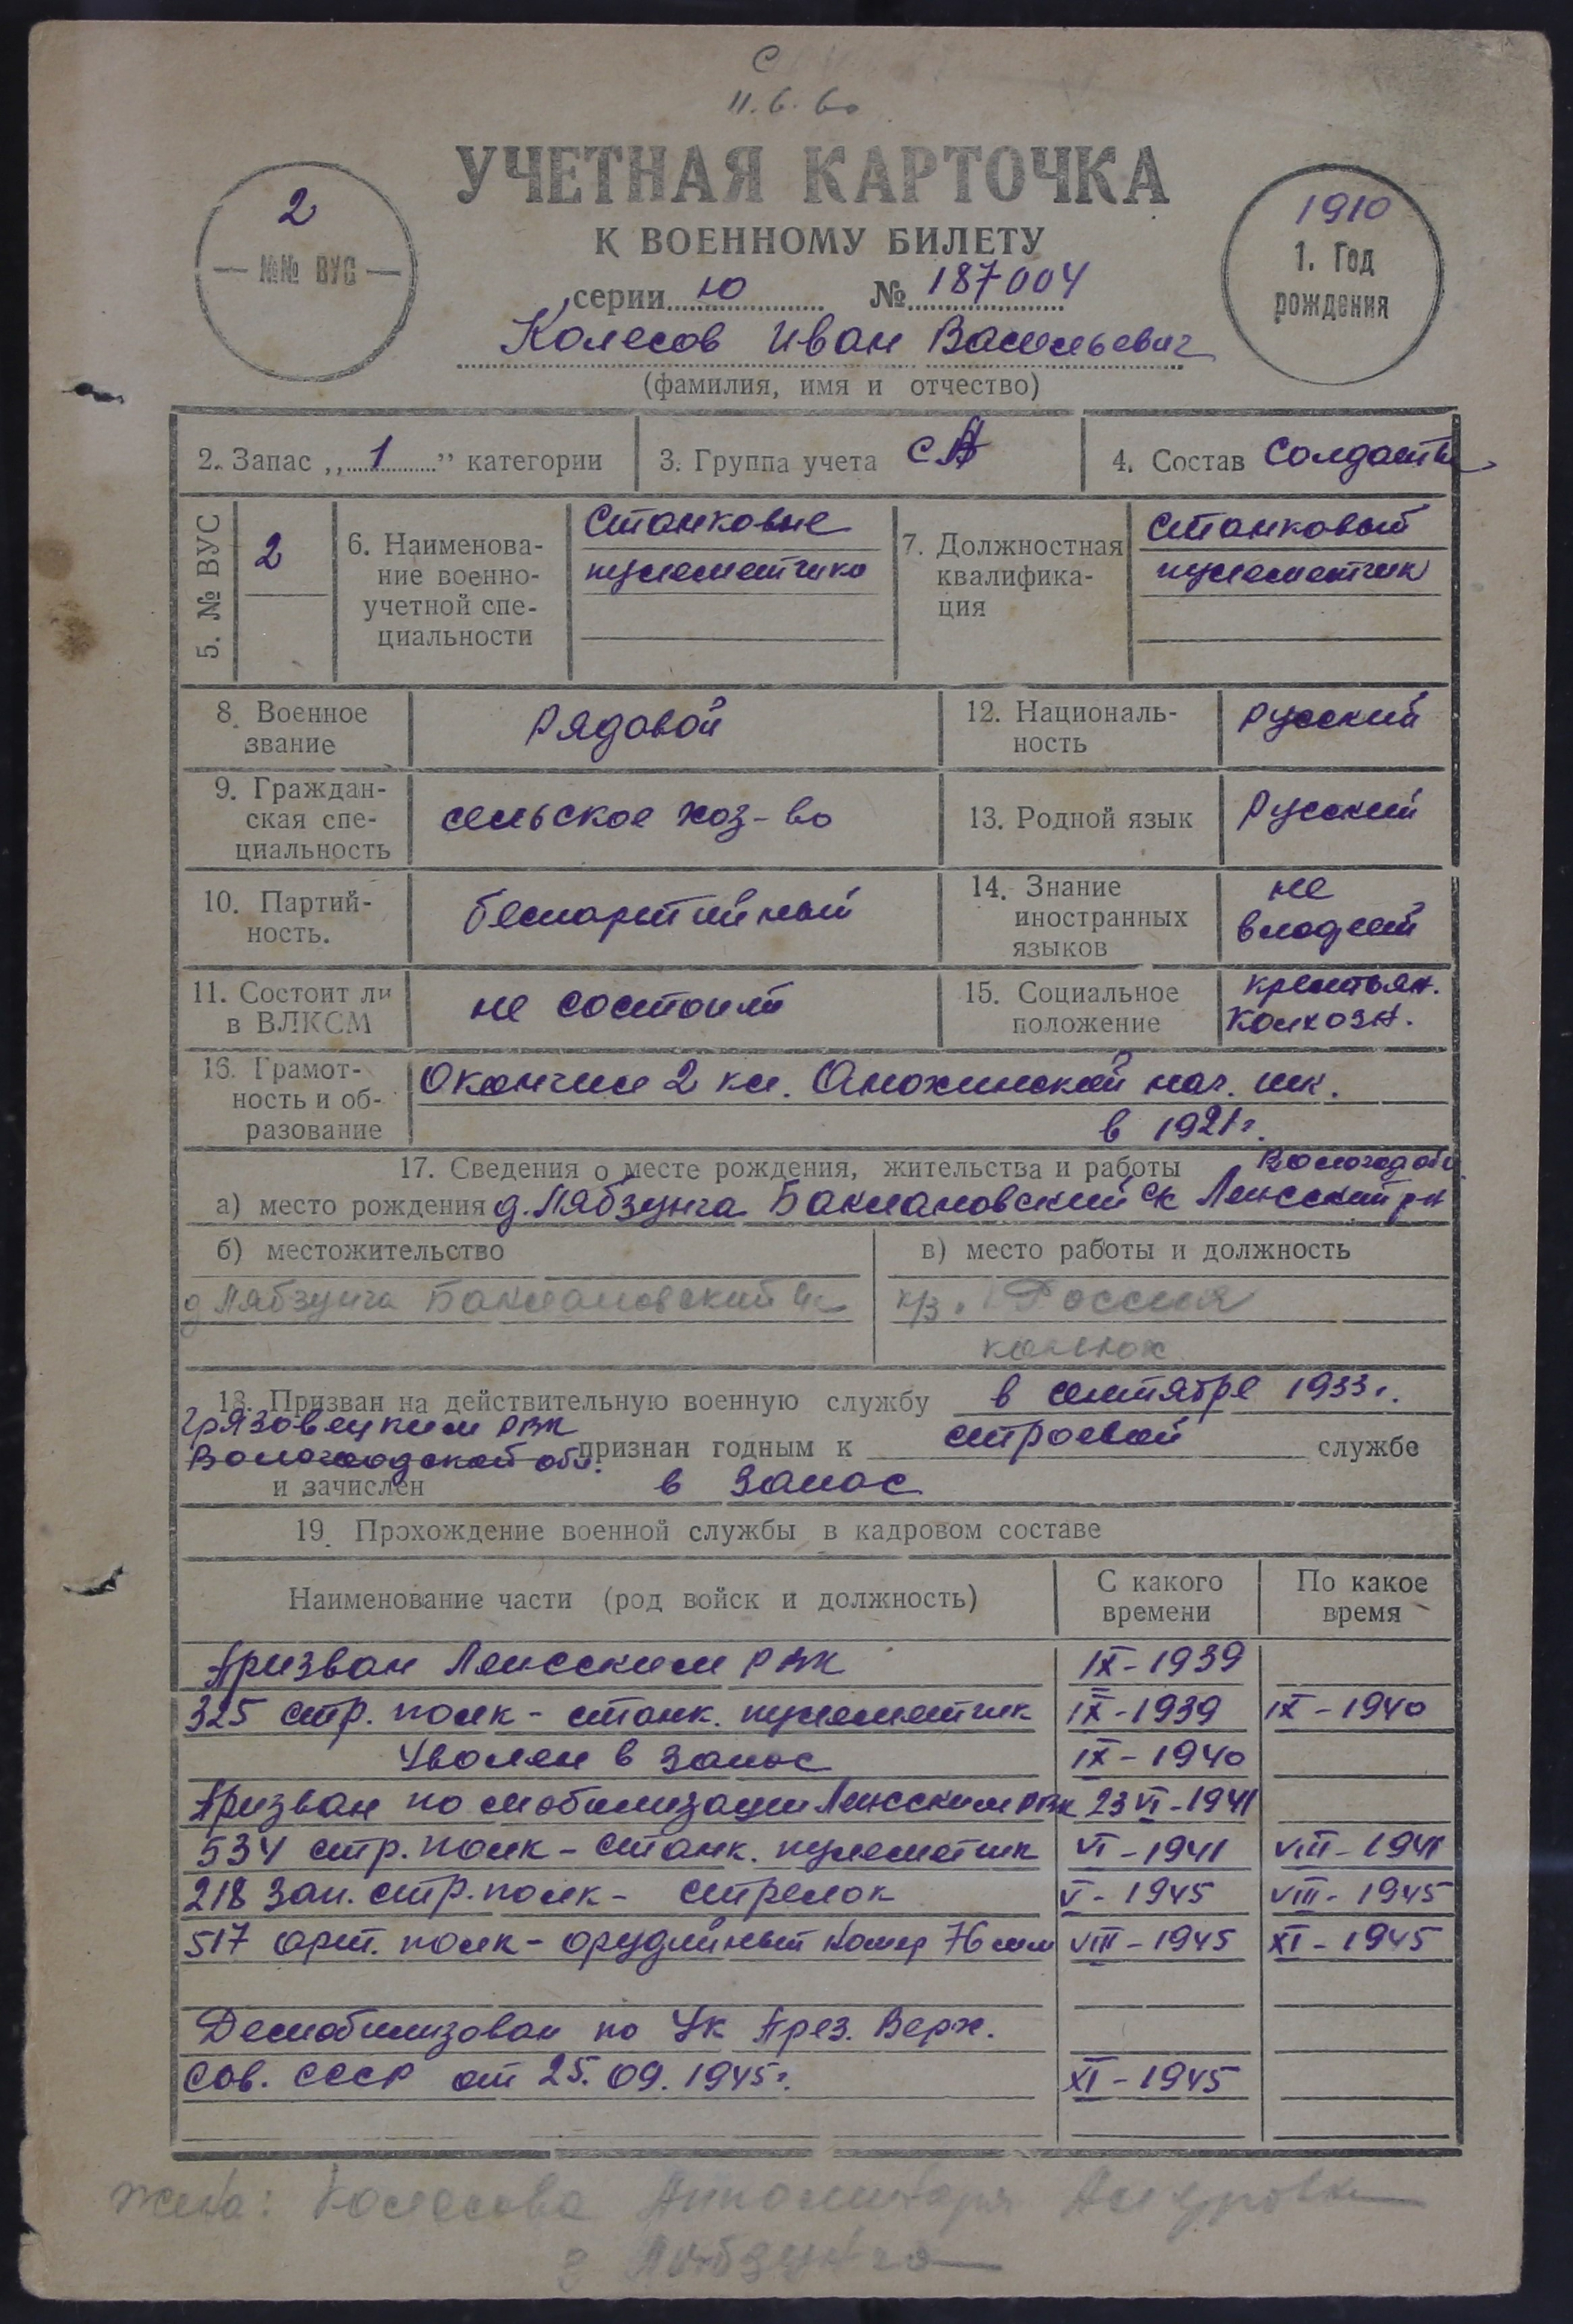 С
11.6.60
УЧЕТНАЯ КАРТОЧКА
К ВОЕННОМУ БИЛЕТУ
2
№№ ВУС
1910
1. Год
рождения
серии ю № 187004
Колесов Иван Васильевич
(фамилия, имя и отчество)
2. Запас „1” категории
3. Группа учета СА
4. Состав Солдаты
5. № ВУС
2
6. Наименова-
ние военно-
учетной спе-
циальности
Станковые
пулеметчики
7. Должностная
квалифика-
ция
Станковый
пулеметчик
8. Военное
звание
Рядовой
12. Националь-
ность
Русский
9. Граждан-
ская спе-
циальность
сельское хоз-во
13. Родной язык
Русский
10. Партий-
ность.
беспартийный
14. Знание
иностранных
языков
не
владеет
11. Состоит ли
в ВЛКСМ
не состоит
15. Социальное
положение
крестьян.
Колхозн.
16. Грамот-
ность и об-
разование
Окончил 2 кл. Анохинской нач. шк.
в 1921 г.
17. Сведения о месте рождения, жительства и работы
Вологод обл
а) место рождения д. Лябзунга Баклановский ск Ленсский рн
б) местожительство
д Лябзунга Баклановский
в) место работы и должность
к/з. Россия
конюх
18. Призван на действительную военную службу в сентябре 1933 г.
Грязовецким РВК
Вологодской обл. признан годным к строевой службе
и зачислен в запас
19. Прохождение военной службы в кадровом составе
Наименование части (род войск и должность)
С какого
времени
По какое
время
Призван Ленсским РВК IX-1939
325 стр. полк - станк. пулеметчик IX-1939 IX-1940
Уволен в запас IX-1940
Призван по мобилизации Ленсским РВК 23 VI-1941
534 стр. полк - станк. пулеметчик VI-1941 VIII-1941
218 зап. стр. полк - стрелок V-1945 VIII-1945
517 арт. полк - орудийный номер 76 мм VIII-1945 XI-1945
Демобилизован по Ук През. Верх.
Сов. СССР от 25.09.1945 г. XI-1945
жена: Колесова